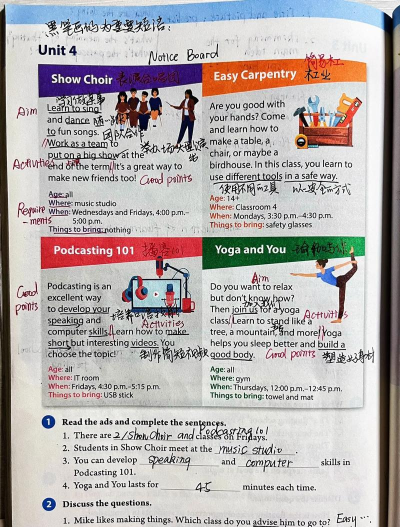 黑笔画的为重要短语:
Unit 4
Notice Board
Show Choir
Aim
Learn to sing
and dance
to fun songs.
团队合作
Work as a team to
put on a big show at the
Activities
end of the term. It's a great way to
make new friends too! Good points
Require-ments
Age: all
Where: music studio
When: Wednesdays and Fridays, 4:00 p.m.–
5:00 p.m.
Things to bring: nothing
Easy Carpentry
木工业
Are you good with
your hands? Come
and learn how to
make a table, a
chair, or maybe a
birdhouse. In this class, you learn to
use different tools in a safe way.
使用不同的工具 以安全的方式
Age: 14+
Where: Classroom 4
When: Mondays, 3:30 p.m.–4:30 p.m.
Things to bring: safety glasses
Podcasting 101
Good points
Podcasting is an
excellent way
to develop your
speaking and
computer skills. Learn how to make
Activities
short but interesting videos. You
choose the topic!
Age: all
Where: IT room
When: Fridays, 4:30 p.m.–5:15 p.m.
Things to bring: USB stick
Yoga and You
Aim
Do you want to relax
but don't know how?
加入我们
Then join us for a yoga
Activities
class. Learn to stand like a
tree, a mountain, and more! Yoga
helps you sleep better and build a
good body. Good points
Age: all
Where: gym
When: Thursdays, 12:00 p.m.–12:45 p.m.
Things to bring: towel and mat
1 Read the ads and complete the sentences.
1. There are 2/Show Choir and Podcasting 101 classes on Fridays.
2. Students in Show Choir meet at the music studio.
3. You can develop speaking and computer skills in
Podcasting 101.
4. Yoga and You lasts for 45 minutes each time.
2 Discuss the questions.
1. Mike likes making things. Which class do you advise him to go to? Easy ...